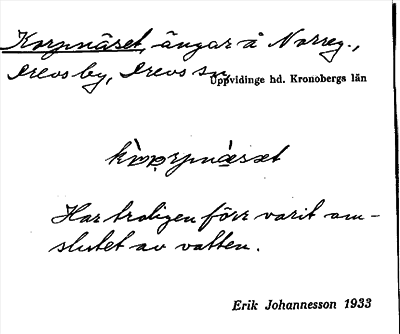 Korpnäset, ängar å Norreg.,
Drevs by, Drevs sn,
Uppvidinge hd. Kronobergs län
Har troligen förr varit om-
slutet av vatten.
Erik Johannesson 1933